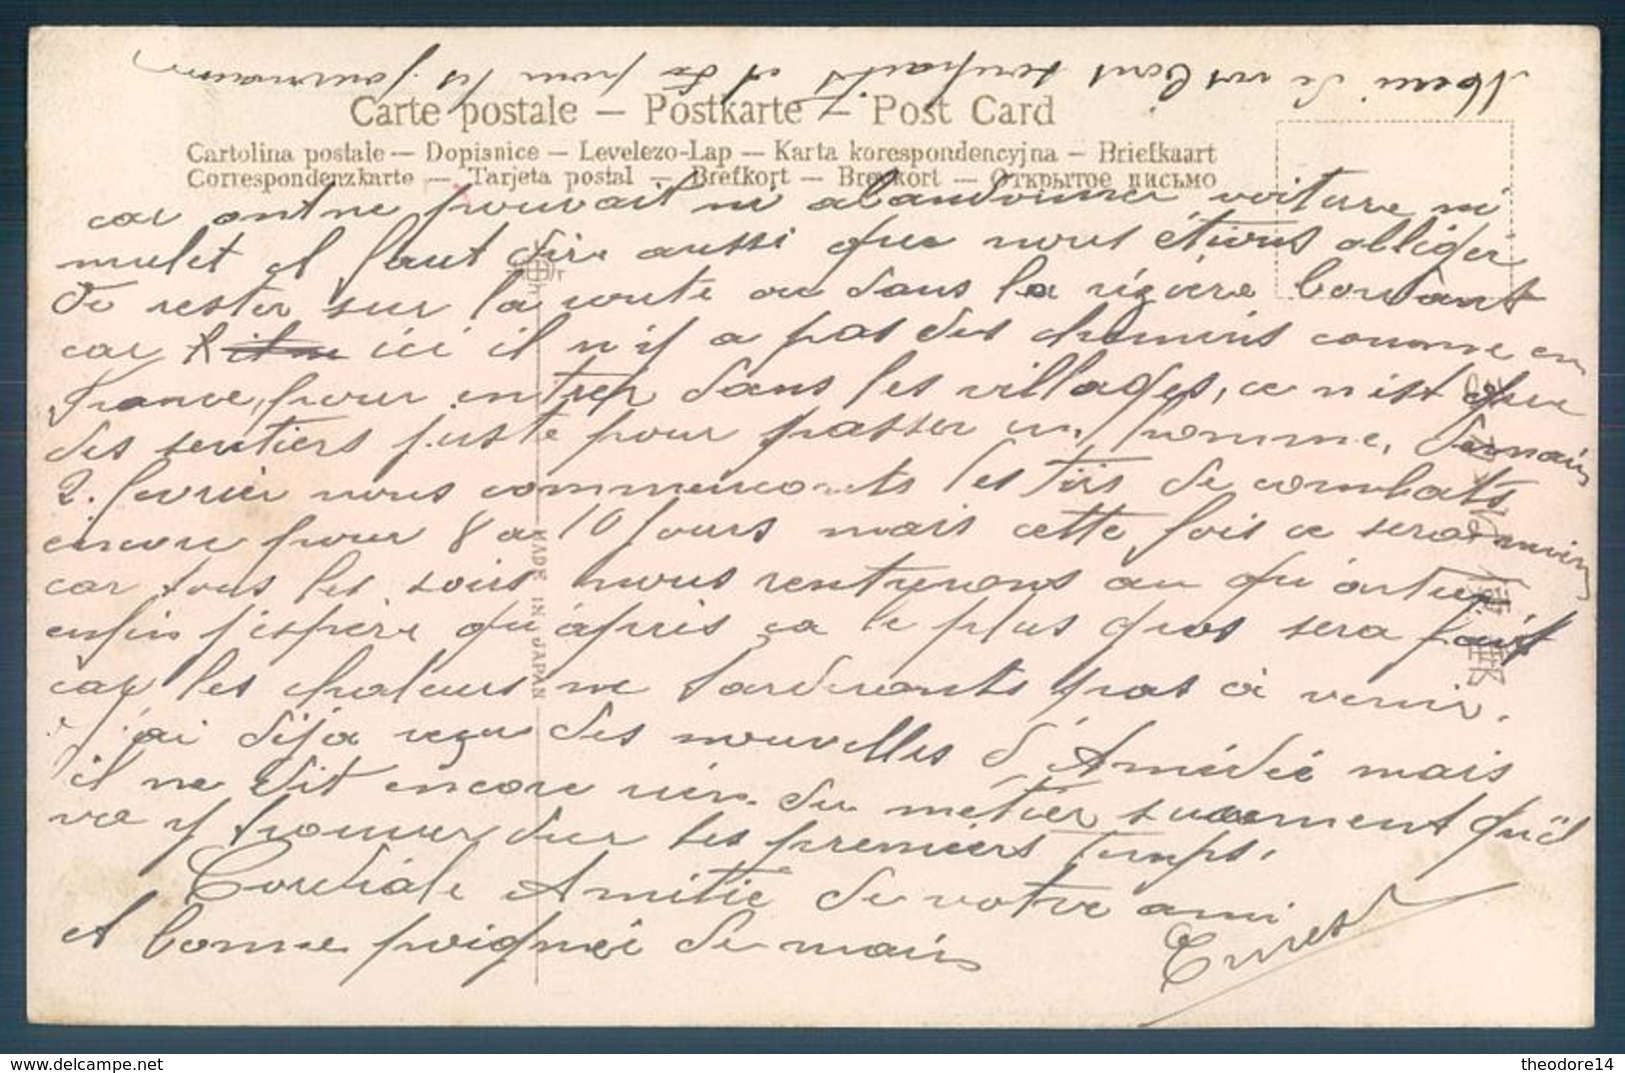 Merci de vos bons souhaits et de pour les journaux
Carte postale — Postkarte — Post Card
Cartolina postale — Dopisnice — Levelezo-Lap — Karta korespondencyjna — Briefkaart
Correspondenzkarte — Tarjeta postal — Brefkort — Brevkort — Открытое письмо
car ont ne pouvait ni abandonner voiture ni
mulet el faut dire aussi que nous étions obliger
de rester sur la route ou dans la rizière
car ici il n'y a pas des chemins comme en
France, pour entrer dans les villages, ce n'est que
des sentiers juste pour passer un homme, demain
2. fevrier nous commencons les tirs de combats
encore pour 8 a 10 jours mais cette fois ce sera moins
car tous les soirs nous rentrerons au
enfin j'espère qu'après ça le plus gros sera fait
car les chaleurs ne tarderonts pas à venir.
j'ai déja reçu des nouvelles d'Amédée mais
il ne dit encore rien du métier surement qu'il
va y trouver dur les premiers temps.
Cordiale Amitié de votre ami
et bonne poignée de main
Ernest
MADE IN JAPAN
theodore14